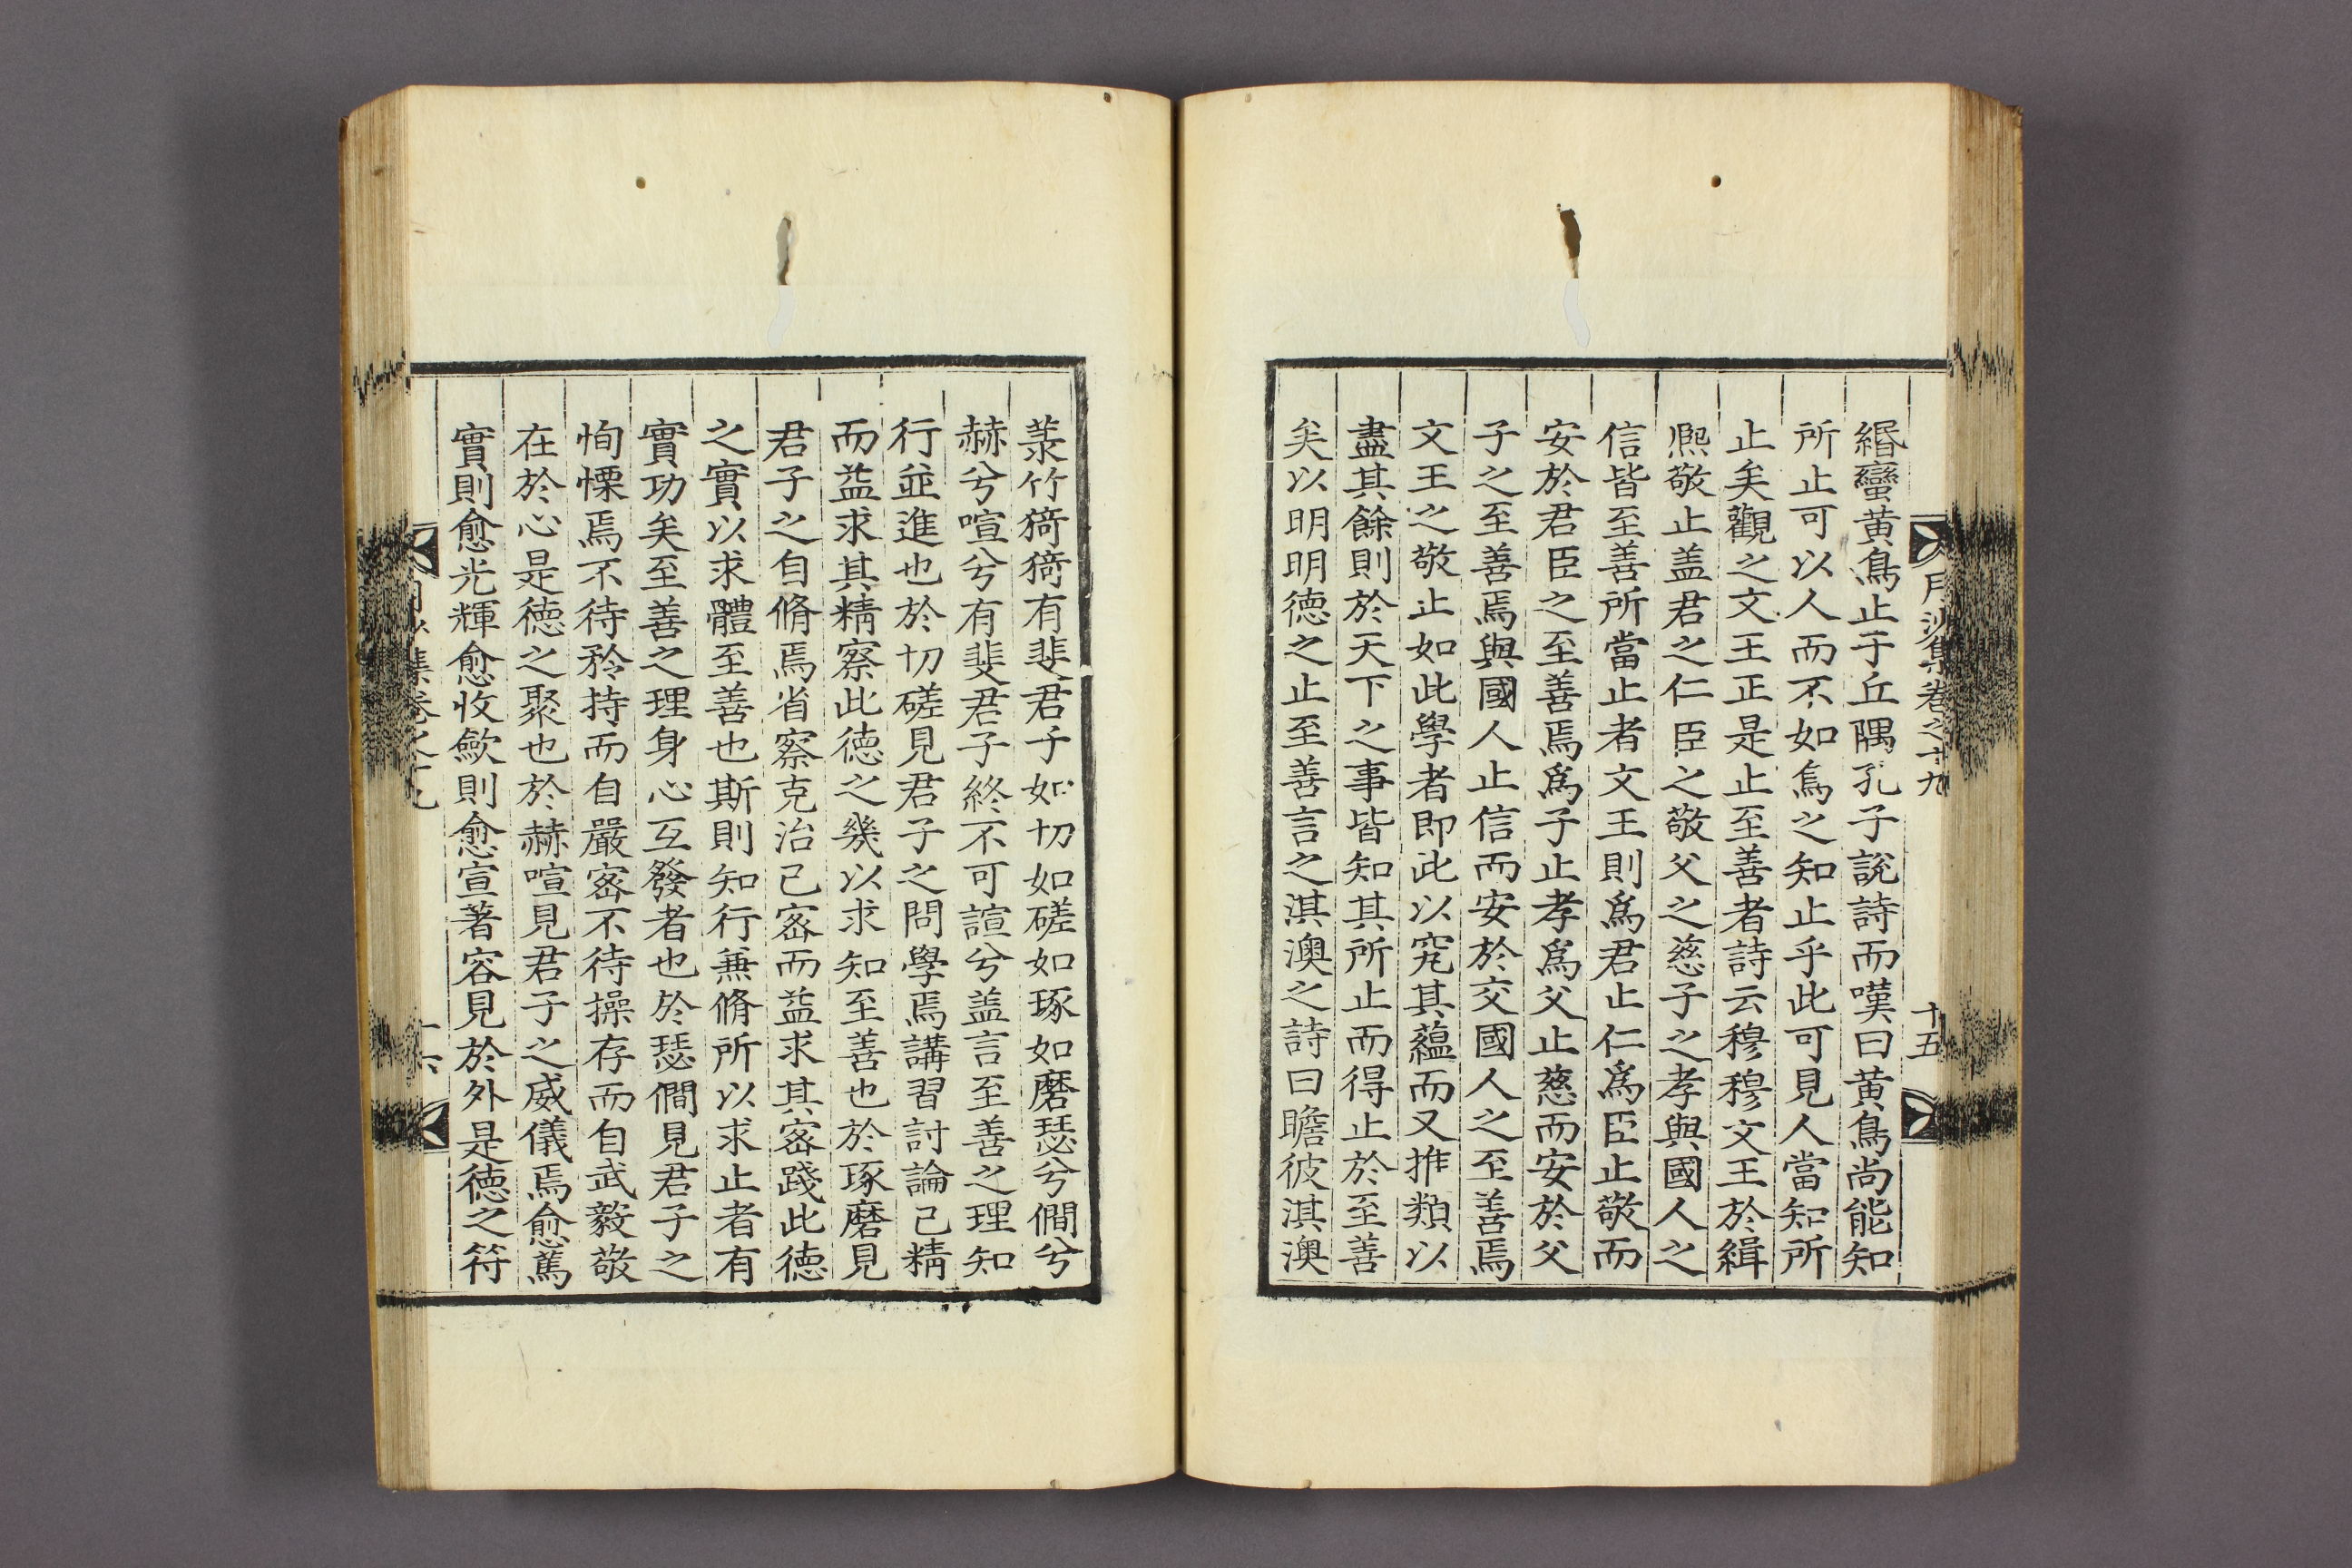 月沙集卷之十九
十五
緡蠻黃鳥止于丘隅孔子說詩而嘆曰黃鳥尚能知
所止可以人而不如鳥之知止乎此可見人當知所
止矣觀之文王正是止至善者詩云穆穆文王於緝
熙敬止盖君之仁臣之敬父之慈子之孝與國人之
信皆至善所當止者文王則爲君止仁爲臣止敬而
安於君臣之至善焉爲子止孝爲父止慈而安於父
子之至善焉與國人止信而安於交國人之至善焉
文王之敬止如此學者即此以究其蘊而又推類以
盡其餘則於天下之事皆知其所止而得止於至善
矣以明明德之止至善言之淇澳之詩曰瞻彼淇澳
菉竹猗猗有斐君子如切如磋如琢如磨瑟兮僩兮
赫兮喧兮有斐君子終不可諠兮盖言至善之理知
行並進也於切磋見君子之問學焉講習討論已精
而益求其精察此德之幾以求知至善也於琢磨見
君子之自脩焉省察克治已密而益求其密踐此德
之實以求體至善也斯則知行兼脩所以求止者有
實功矣至善之理身心互發者也於瑟僩見君子之
恂慄焉不待矜持而自嚴密不待操存而自武毅敬
在於心是德之聚也於赫喧見君子之威儀焉愈篤
實則愈光輝愈收歛則愈宣著容見於外是德之符